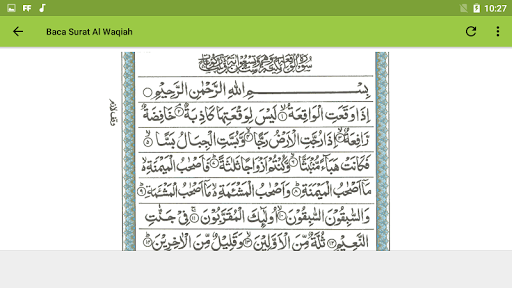 FF
10:27
Baca Surat Al Waqiah
بِسْــــمِ اللهِ الرَّحْمٰنِ الرَّحِيْمِ
اِذَا وَقَعَتِ الْوَاقِعَةُ ۙ۱ لَيْسَ لِوَقْعَتِهَا كَاذِبَةٌ ۘ۲ خَافِضَةٌ
رَّافِعَةٌ ۙ۳ اِذَا رُجَّتِ الْاَرْضُ رَجًّا ۙ۴ وَّبُسَّتِ الْجِبَالُ بَسًّا ۙ۵
فَكَانَتْ هَبَآءً مُّنْۢبَثًّا ۙ۶ وَّكُنْتُمْ اَزْوَاجًا ثَلٰثَةً ؕ۷ فَاَصْحٰبُ الْمَيْمَنَةِ ۙ
مَاۤ اَصْحٰبُ الْمَيْمَنَةِ ؕ۸ وَاَصْحٰبُ الْمَشْـَٔمَةِ ۙ مَاۤ اَصْحٰبُ الْمَشْـَٔمَةِ ؕ۹
وَالسّٰبِقُوْنَ السّٰبِقُوْنَ ۙ۱۰ اُولٰٓئِكَ الْمُقَرَّبُوْنَ ۚ۱۱ فِيْ جَنّٰتِ
النَّعِيْمِ ۱۲ ثُلَّةٌ مِّنَ الْاَوَّلِيْنَ ۙ۱۳ وَقَلِيْلٌ مِّنَ الْاٰخِرِيْنَ ؕ۱۴